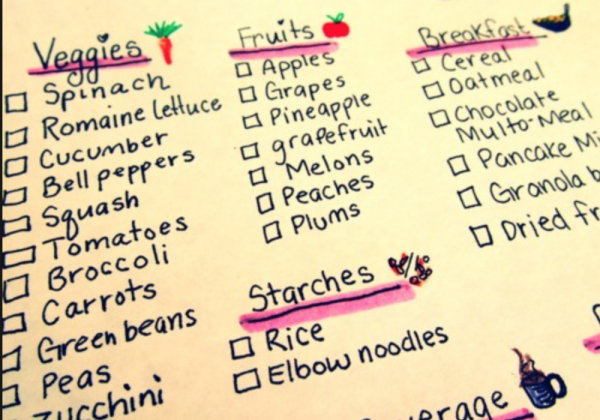 Veggies
Spinach
Romaine lettuce
Cucumber
Bell peppers
Squash
Tomatoes
Broccoli
Carrots
Green beans
Peas
Zucchini
Fruits
Apples
Grapes
Pineapple
grapefruit
Melons
Peaches
Plums
Starches
Rice
Elbow noodles
Breakfast
Cereal
Oatmeal
Chocolate
Multo-Meal
Pancake
Granola
Dried